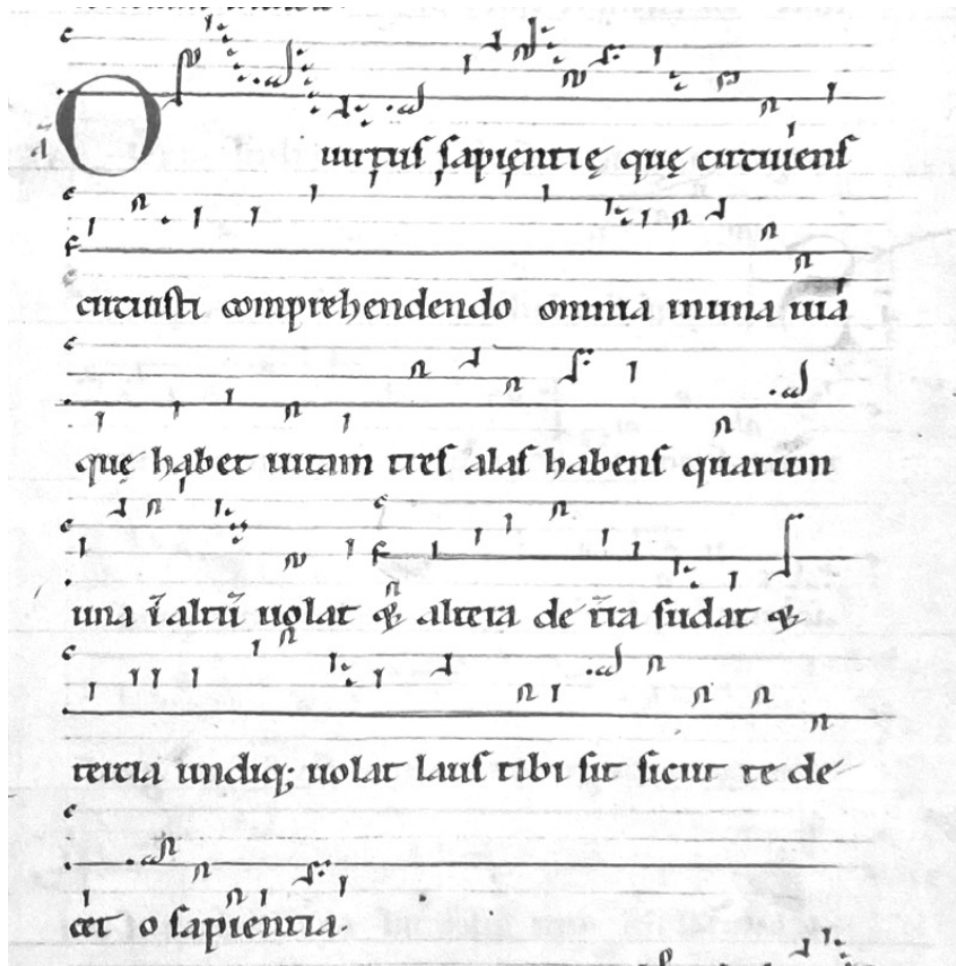 O uirtus sapientię quę circuiens
circuisti comprehendendo omnia in una uia
quę habet uitam tres alas habens quarum
una ī altū uolat & altera de t̄ra sudat &
tercia undiq; uolat laus tibi sit sicut te de
cet o sapientia.